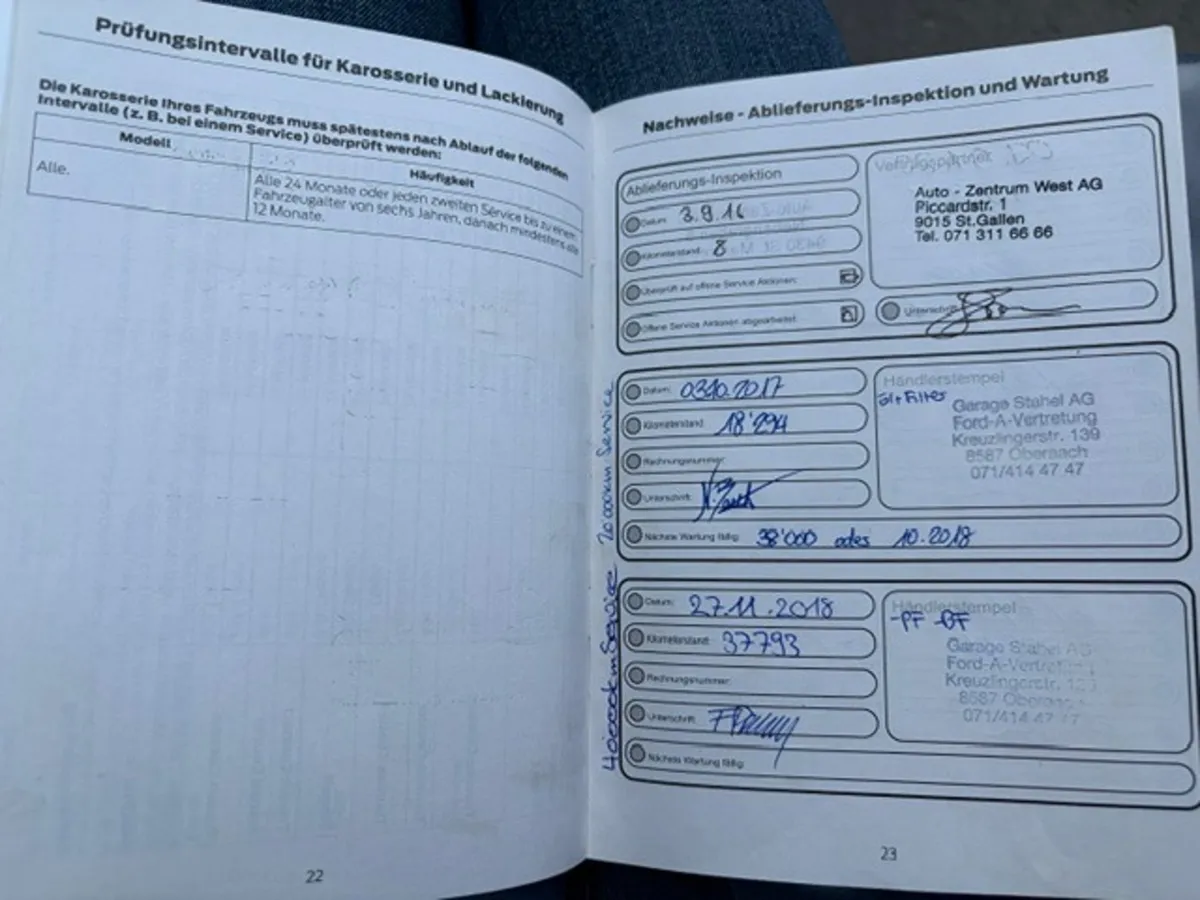 Prüfungsintervalle für Karosserie und Lackierung
Die Karosserie Ihres Fahrzeugs muss spätestens nach Ablauf der folgenden
Intervalle (z. B. bei einem Service) überprüft werden:
Modell
Häufigkeit
Alle.
Alle 24 Monate oder jeden zweiten Service bis zu einem
Fahrzeugalter von sechs Jahren, danach mindestens alle
12 Monate.
22
Nachweise - Ablieferungs-Inspektion und Wartung
Ablieferungs-Inspektion
Datum: 3.9.16
Kilometerstand: 8
Überprüft auf offene Service Aktionen:
Offene Service Aktionen abgearbeitet:
Vertragspartner
Auto - Zentrum West AG
Piccardstr. 1
9015 St.Gallen
Tel. 071 311 66 66
Unterschrift:
20'000km Service
Datum: 03.10.2017
Kilometerstand: 18'294
Rechnungsnummer:
Unterschrift:
Nächste Wartung fällig: 38'000 oder 10.2018
Händlerstempel
öl+Filter
Garage Stahel AG
Ford-A-Vertretung
Kreuzlingerstr. 139
8587 Oberaach
071/414 47 47
40000km Service
Datum: 27.11.2018
Kilometerstand: 37793
Rechnungsnummer:
Unterschrift:
Nächste Wartung fällig:
Händlerstempel
-PF -BF
Garage Stahel AG
Ford-A-Vertretung
Kreuzlingerstr. 139
8587 Oberaach
071/414 47 47
23